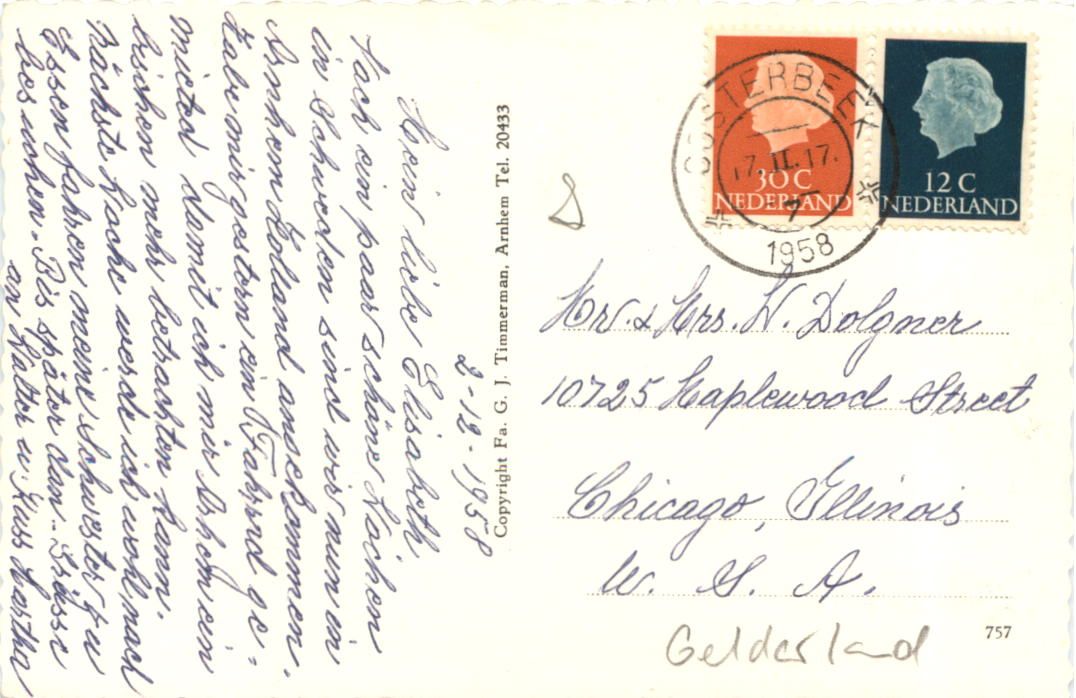 2-12-1958
Mein liebe Elisabeth
Nach ein paar schöne Wochen
in Schweden sind wir nun in
Arnhem Holland angekommen.
Habe mir gestern ein Fahrrad ge-
mieted damit ich mir Arhem ein
bischen mehr betrachten kann.
Nächste Woche werde ich wohl nach
Essen fahren meine Schwester zu
besuchen. Bis später dann. Grüsse
an Walter u. Kuss Martha
Copyright Fa. G. J. Timmerman, Arnhem Tel. 20433
OOSTERBEEK
17.II.17.
1958
30 C
NEDERLAND
12 C
NEDERLAND
Mr. & Mrs. W. Dolgner
10725 Maplewood Street
Chicago, Illinois
U. S. A.
757
Gelderland